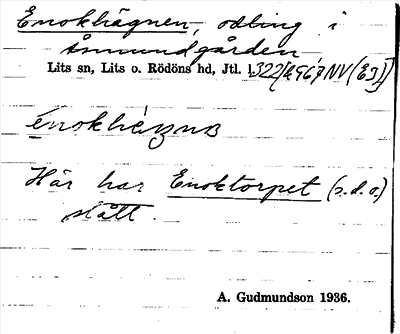 Enokhägnen, odling i
Åmundgården
Lits sn, Lits o. Rödöns hd, Jtl.
énokhägnɞ
Här har Enoktorpet (s.d.o.)
stått.
A. Gudmundson 1936.